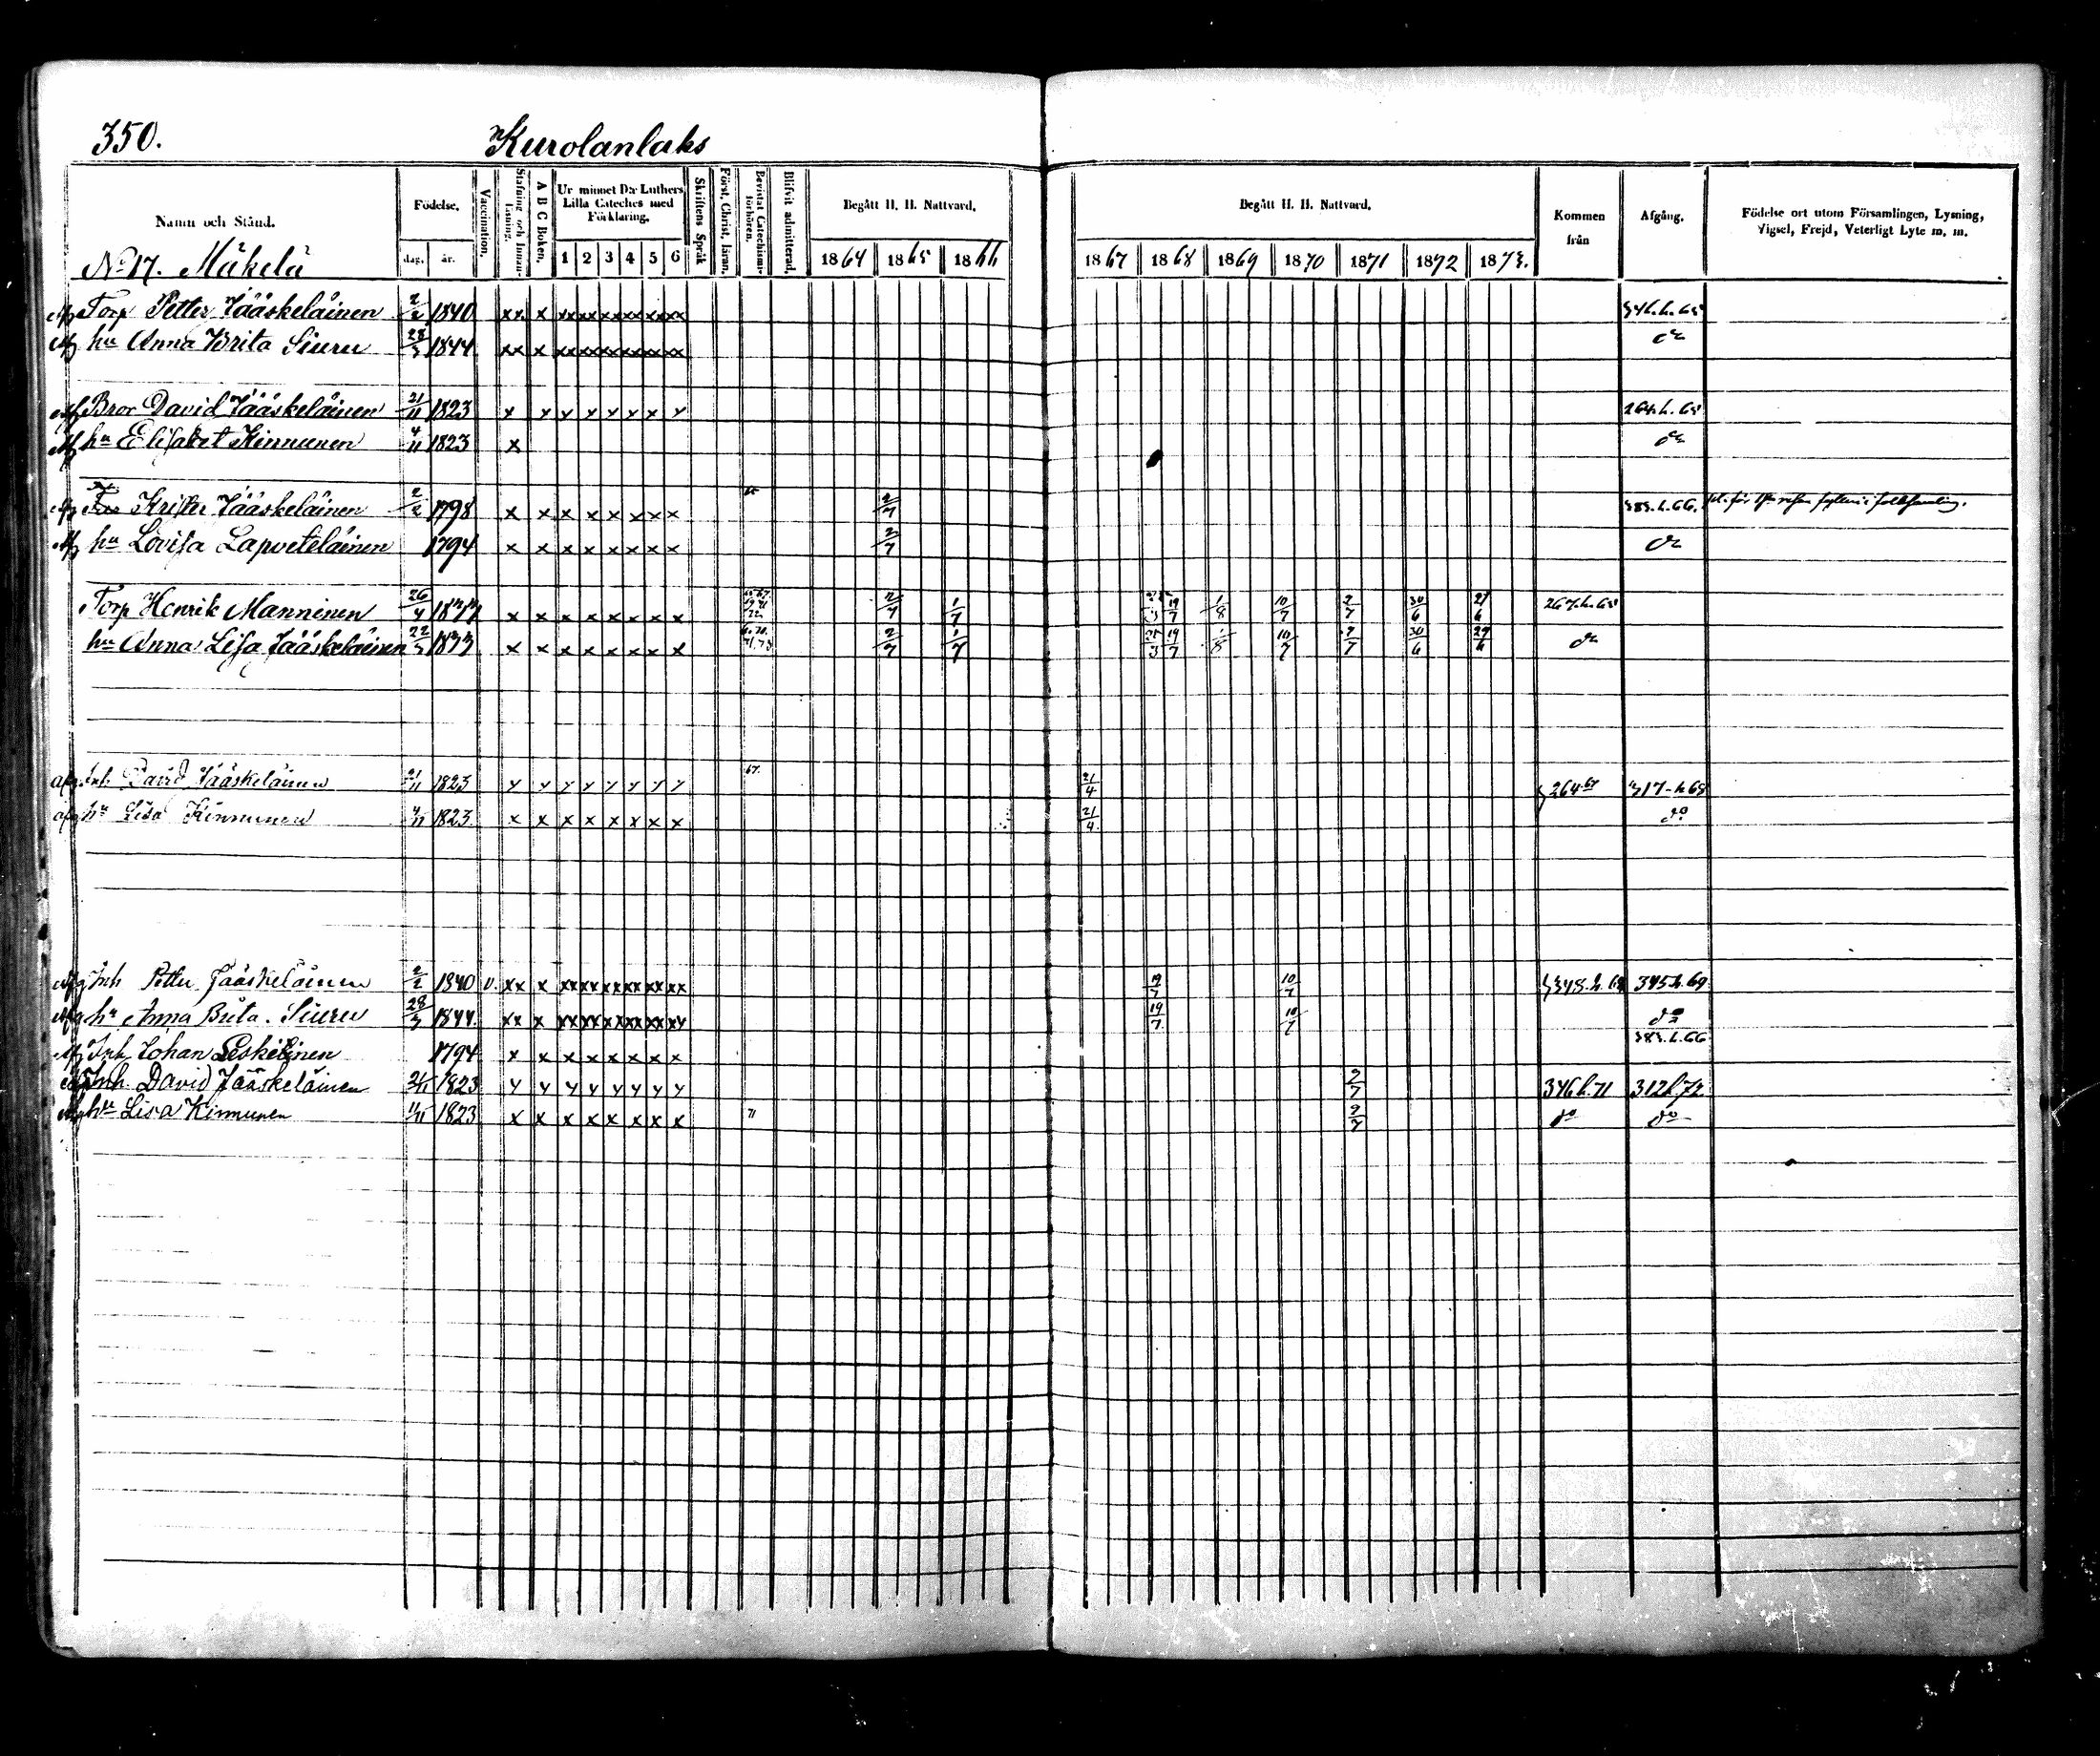 350. Kurolanlaks
Namn och Stånd. Födelse. Vaccination. Stafning och Innanläsning. A B C Boken. Ur minnet D:r Luthers Lilla Cateches med Förklaring. Skriftens Språk Först. Christ. läran. Bevistat Catechismiförhören. Blifvit admitterad. Begått H. H. Nattvard. Begått H. H. Nattvard. Kommen från Afgång. Födelse ort utom Församlingen, Lysning, Vigsel, Frejd, Veterligt Lyte m. m.
No 17. Mäkelä dag. år. 1 2 3 4 5 6 1864 1865 1866 1867 1868 1869 1870 1871 1872 1873.
Afg Torp Petter Jääskeläinen 2/2 1840 xx x xx xx xx xx xx xx 346.h.65
Afg hu Anna Brita Siuru 28/3 1844 xx x xx xx xx xx xx xx do
Afg Bror David Jääskeläinen 21/11 1823 x x x x x x x x 264.h.65
Afg hu Elisabet Kinnunen 4/11 1823 x do
Afg Krister Jääskeläinen 2/2 1798 x x x x x x x x 2/7 383.h.66.
Afg hu Lovisa Lapveteläinen 1794 x x x x x x x x 2/7 do
Torp Henrik Manninen 26/4 18 x x x x x x x x 2/7 1/7 19/7 1/8 10/7 2/7 30/6 267.h.65
hu Anna Lisa Jääskeläinen 22/3 1833 x x x x x x x x 2/7 1/7 21/3 19/7 1/8 10/7 2/7 30/6 29/6 do
afg. Inh David Jääskeläinen 21/11 1823 x x x x x x x x 67. 21/4 264.67 317-h68
afg hu Lisa Kinnunen 4/11 1823. x x x x x x x x 21/4. do
Afg Inh Petter Jääskeläinen 2/2 1840 v. xx x xx xx xx xx xx xx 19/7 10/7 348.h.68 345h.69.
Afg hu Anna Brita. Siuru 28/3 1844. xx x xx xx xx xx xx xx 19/7 10/7 do
Afg Inh Johan Leskelinen 1794 x x x x x x x x 383.h.66
Afg Inh. David Jääskeläinen 21/11 1823 x x x x x x x x 2/7 346h.71 312h.72.
Afg hu Lisa Kinnunen 4/11 1823 x x x x x x x x 71 2/7 do do